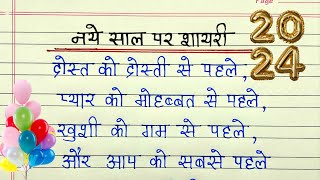 Page
नये साल पर शायरी
2024
दोस्त को दोस्ती से पहले,
प्यार को मोहब्बत से पहले,
खुशी को गम से पहले,
और आप को सबसे पहले